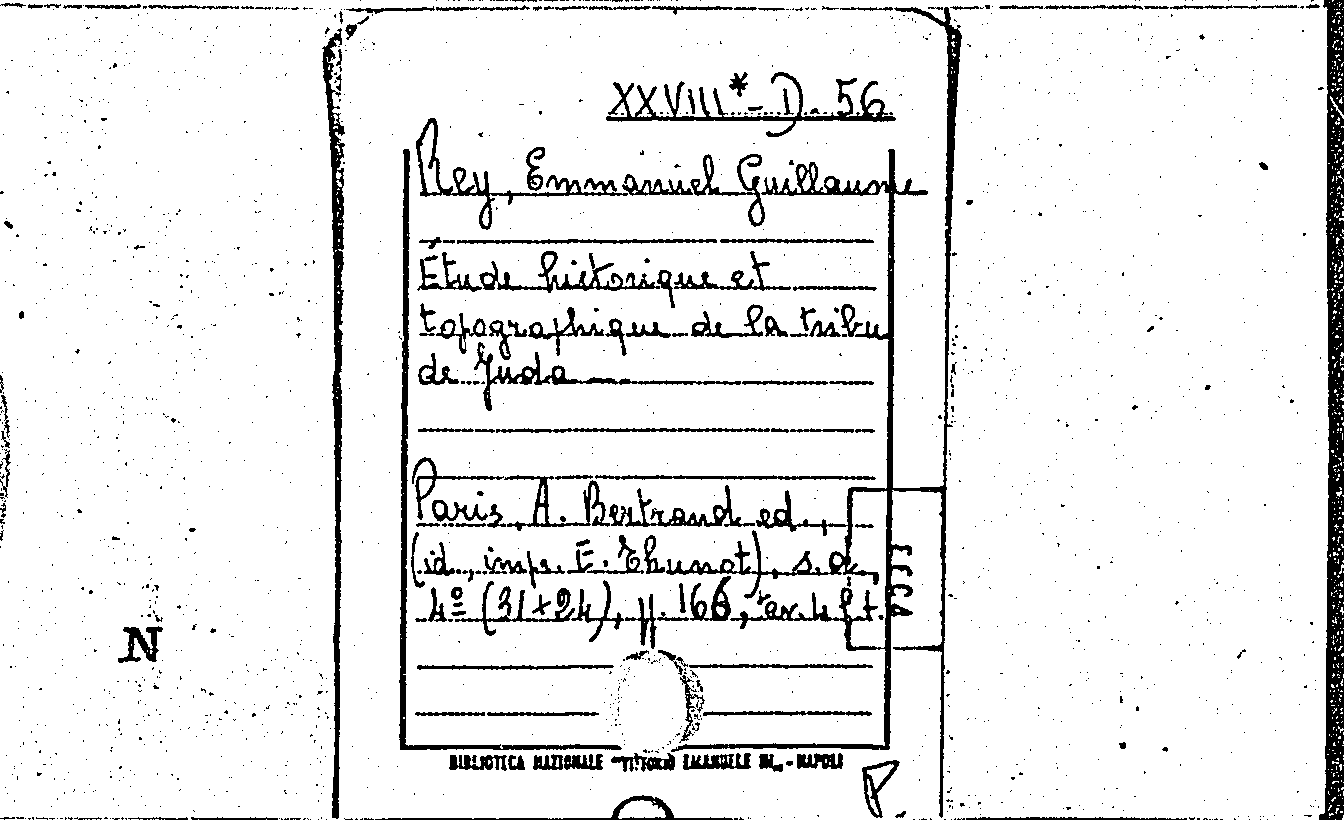 XXVIII* - D. 56
Rey, Emmanuel Guillaume
Étude historique et
topographique de la tribu
de Juda
Paris, A. Bertrand ed.,
(id., impr. E. Thunot), s.d.,
4º (31×24), pp. 166, tav. 4 f.t.
ECCA
N
BIBLIOTECA NAZIONALE "VITTORIO EMANUELE III" - NAPOLI